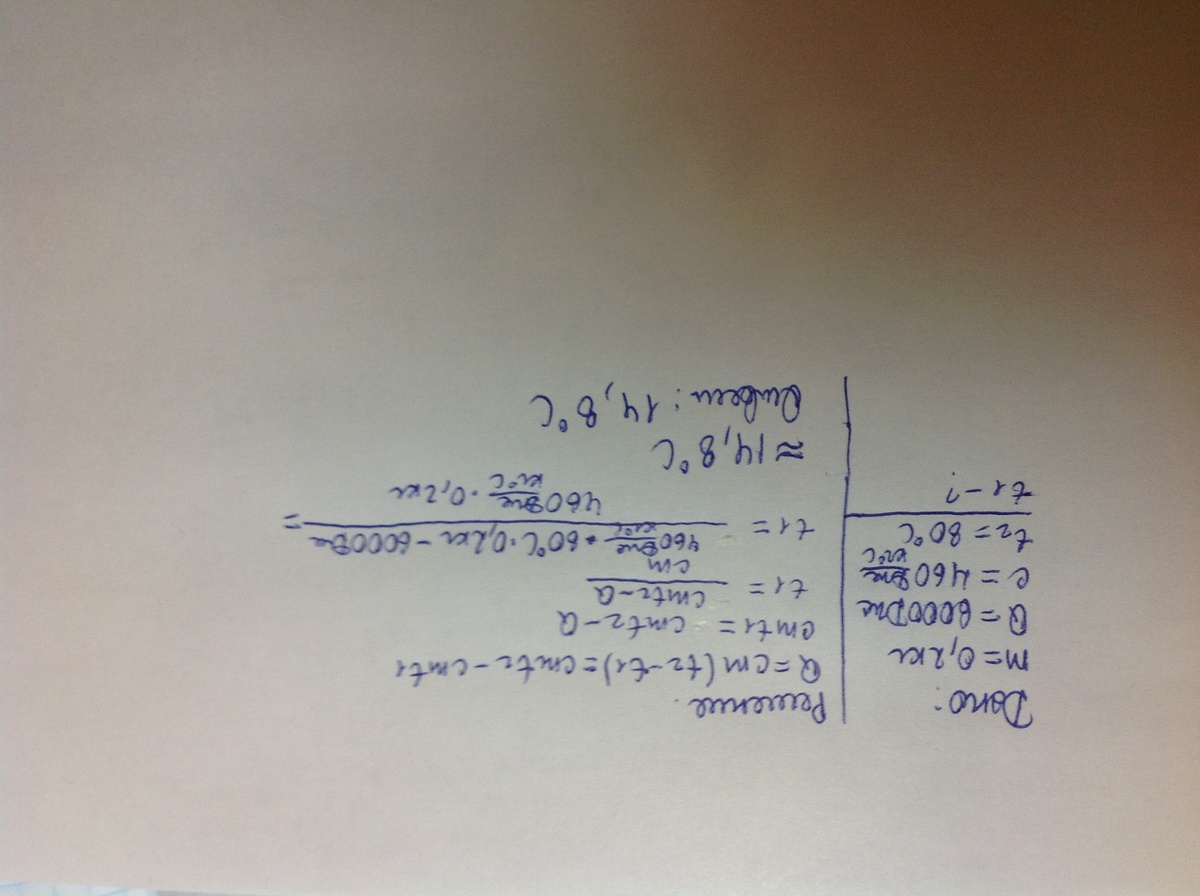 Дано:
m=0,2 кг
Q=6000Дж
c=460 Дж/кг°C
t2=80°C
t1-?
Решение.
Q=cm(t2-t1)=cmt2-cmt1
cmt1=cmt2-Q
t1=(cmt2-Q)/cm
t1=(460 Дж/кг°C * 80°C·0,2кг-6000Дж)/(460 Дж/кг°C · 0,2кг)=
≈14,8°C
Ответ: 14,8°C